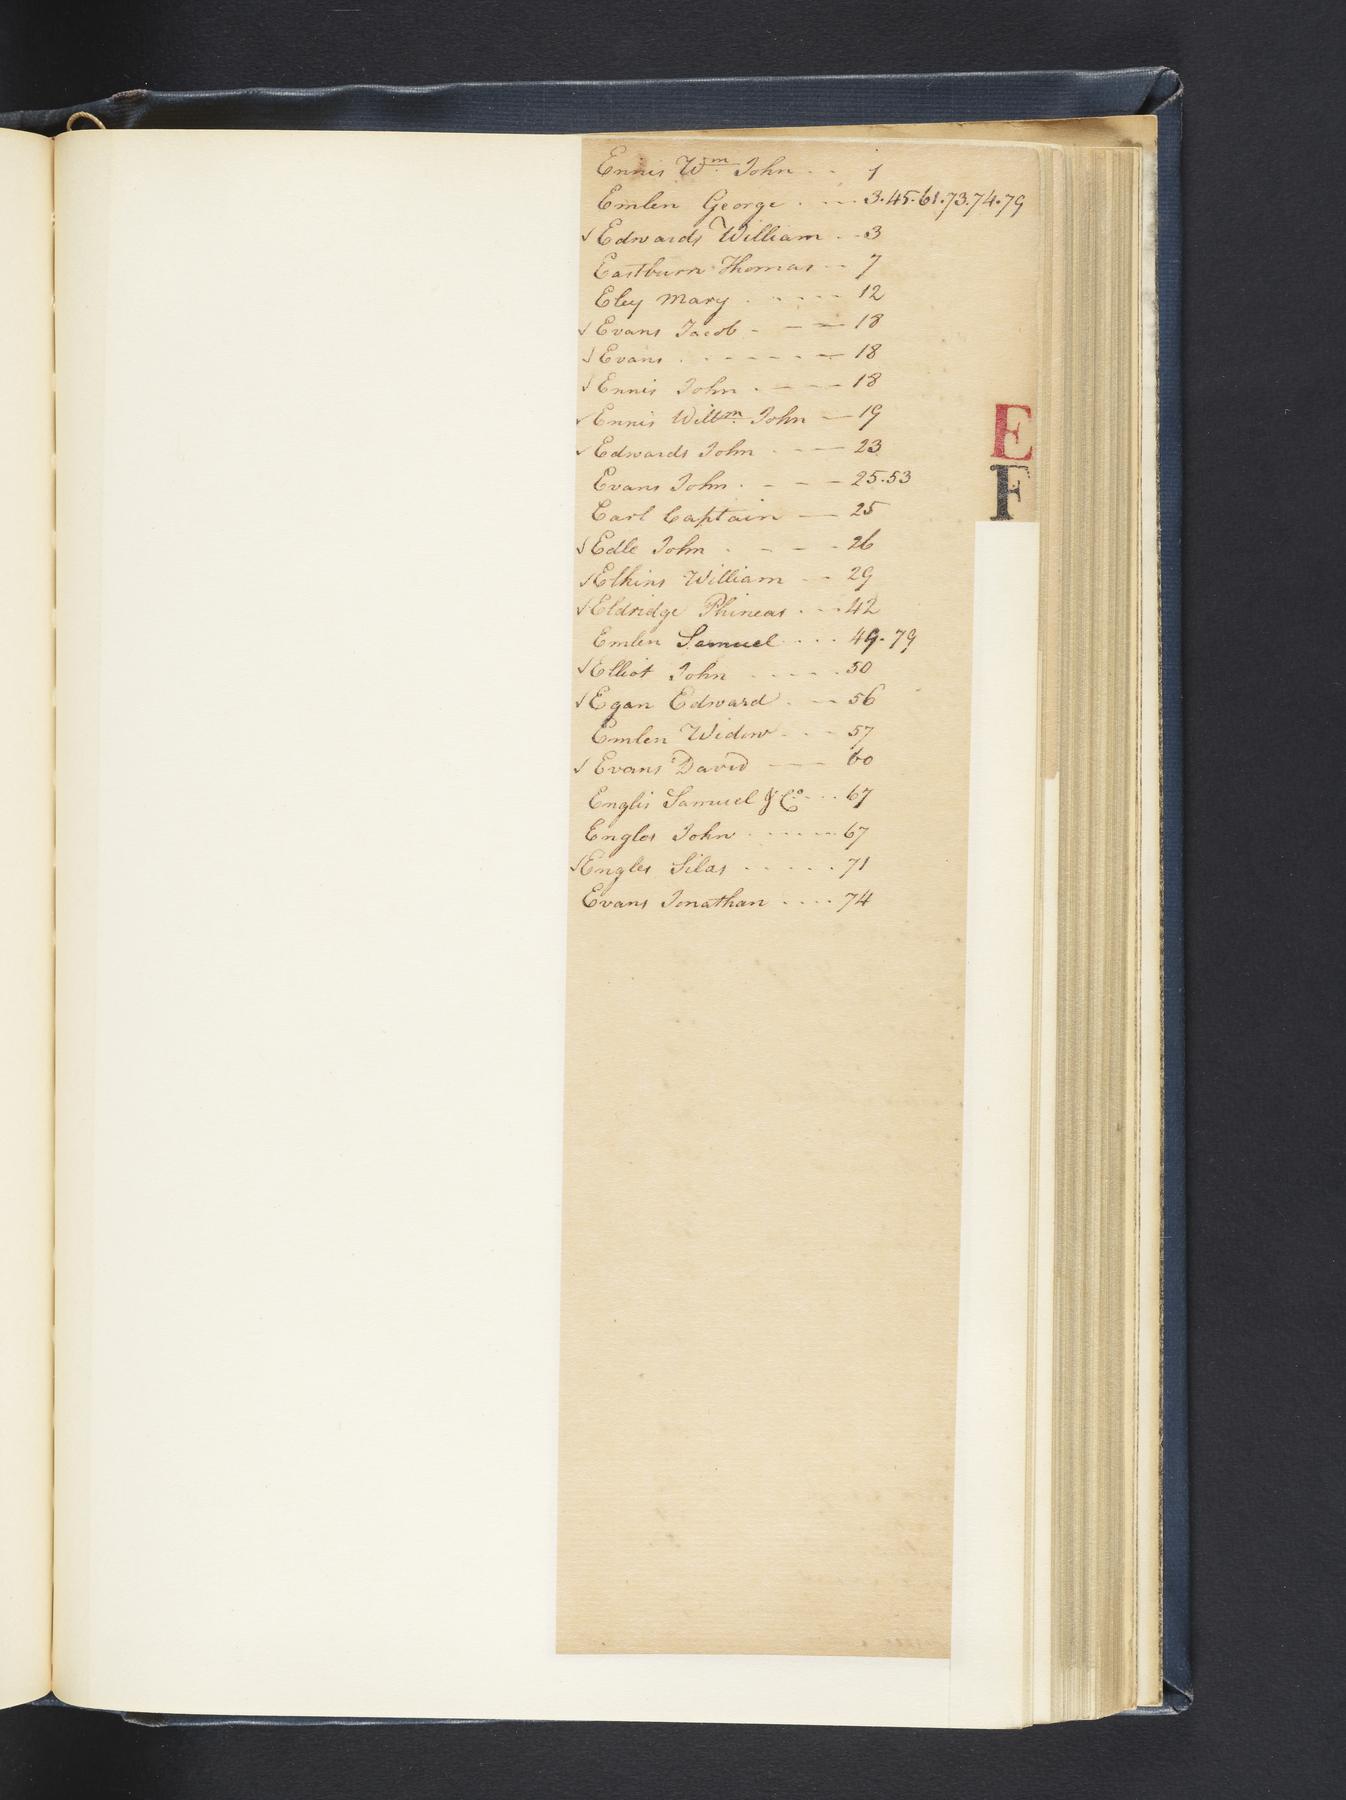 Ennis Wm. John - - 1
Emlen George . - - . 3.45.61.73.74.79
√ Edwards William - - 3
Eastburn Thomas - - 7
Eley Mary . - - - - 12
√ Evans Jacob - - - 18
√ Evans . - - - - - - 18
√ Ennis John . - - - 18
√ Ennis Willm. John - 19
√ Edwards John - - - 23
Evans John . - - - 25.53
Earl Captain - - 25
√ Edle John . - - - 26
√ Elkins William - - 29
√ Eldridge Phineas . - - 42
Emlen Samuel . . . . 49.79
√ Elliot John . . - - . 50
√ Egan Edward . - - 56
Emlen Widow - - - 57
√ Evans David - - 60
Englis Samuel & Co. - . . 67
Engles John . - - - - - 67
√ Engles Silas - - - - - . 71
Evans Jonathan - - - . 74
E
F